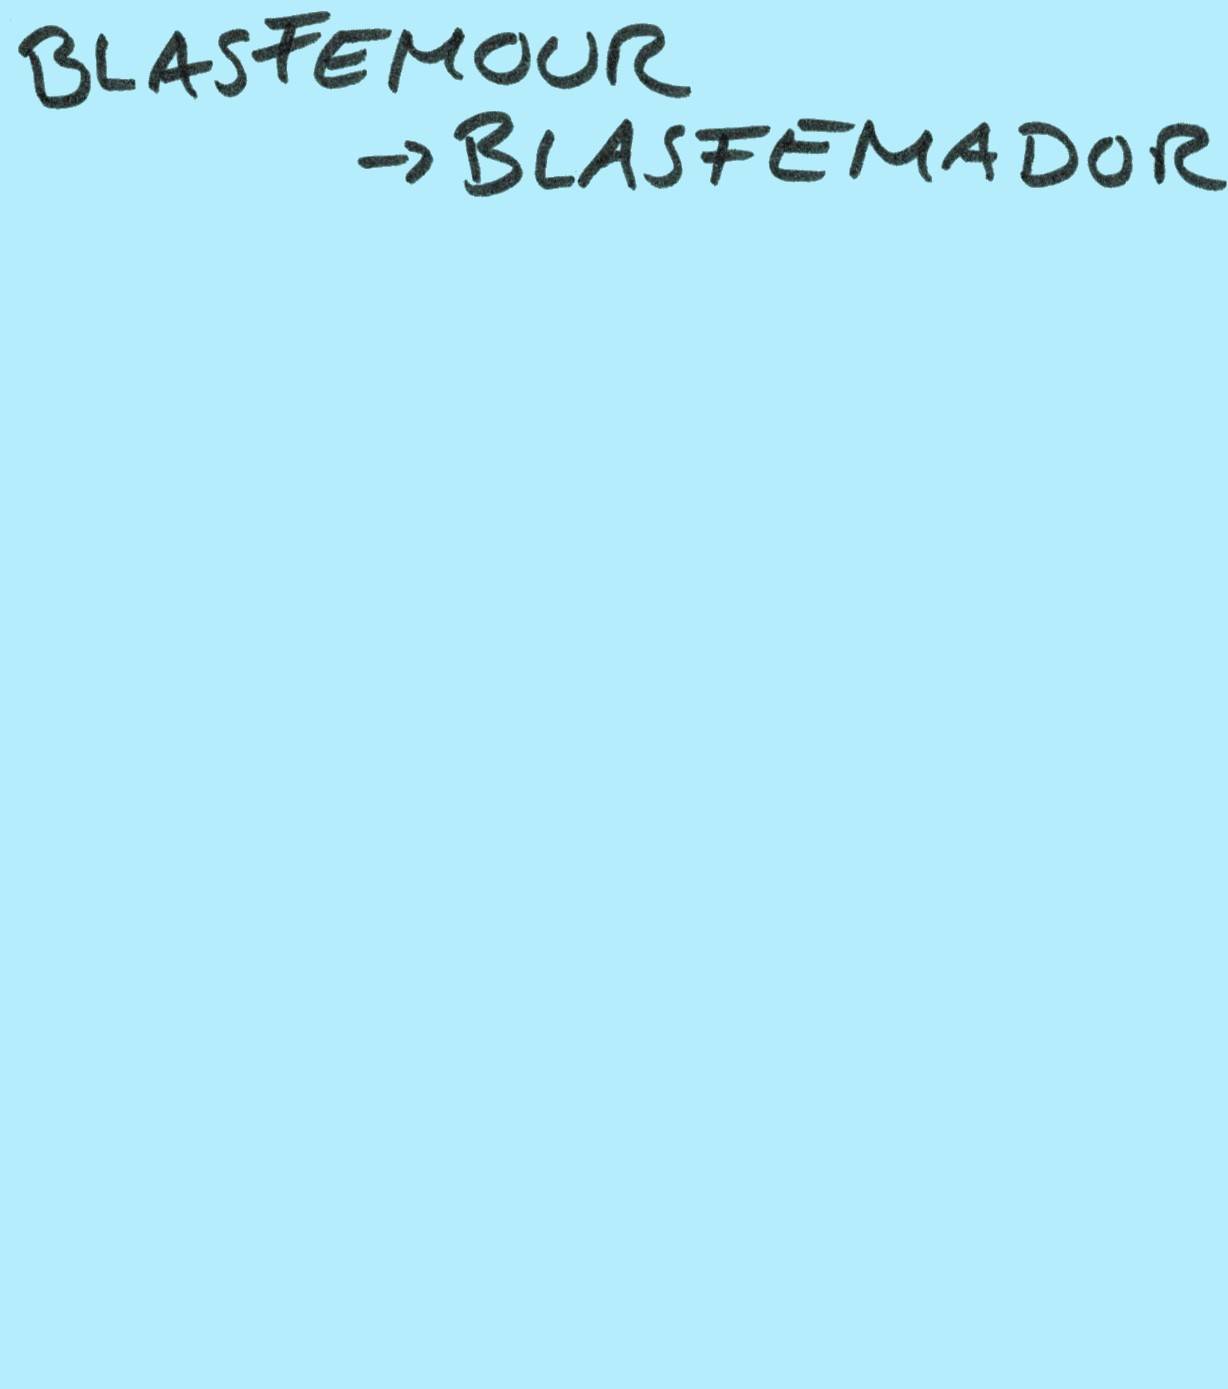 BLASFEMOUR
→ BLASFEMADOR